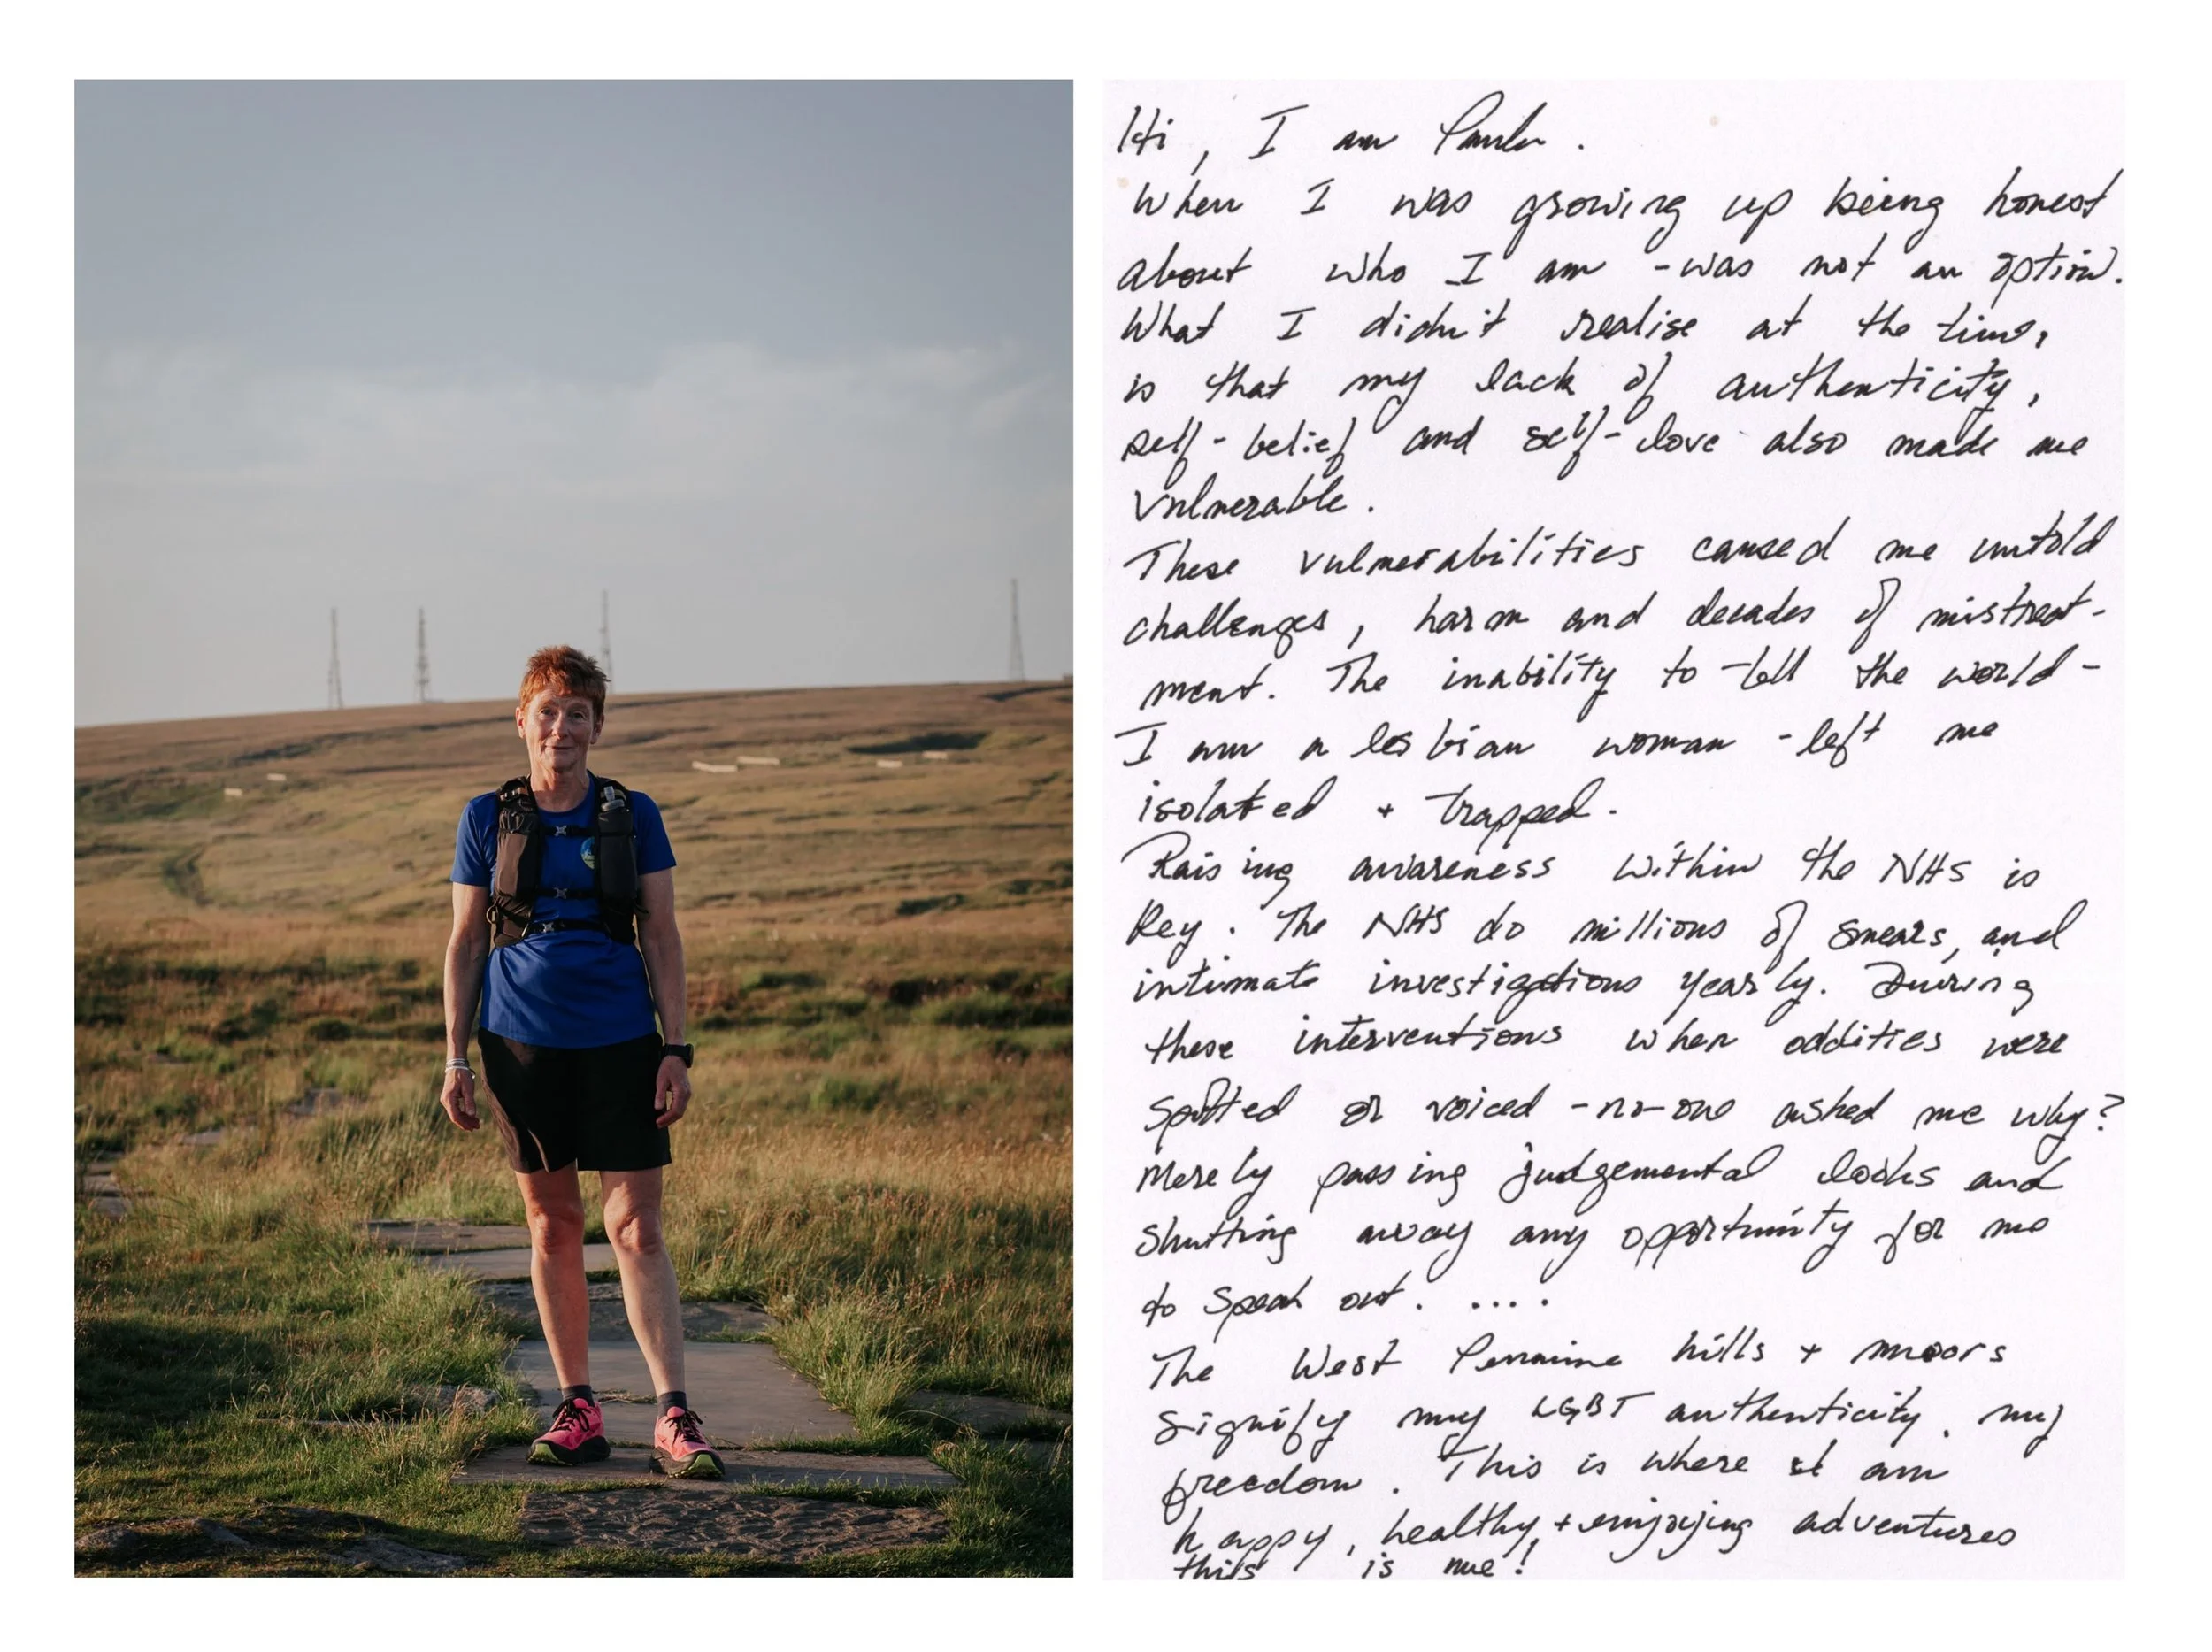 Hi, I am Paula.
When I was growing up being honest
about who I am - was not an option.
What I didn't realise at the time,
is that my lack of authenticity,
self-belief and self-love also made me
vulnerable.
These vulnerabilities caused me untold
challenges, harm and decades of mistreat-
ment. The inability to tell the world -
I am a lesbian woman - left me
isolated + trapped.
Raising awareness within the NHS is
key. The NHS do millions of smears, and
intimate investigations yearly. During
these interventions when oddities were
spotted or voiced - no-one asked me why?
Merely passing judgemental looks and
shutting away any opportunity for me
to speak out. ....
The West Pennine hills + moors
signify my LGBT authenticity, my
freedom. This is where I am
happy, healthy, + enjoying adventures
this is me!